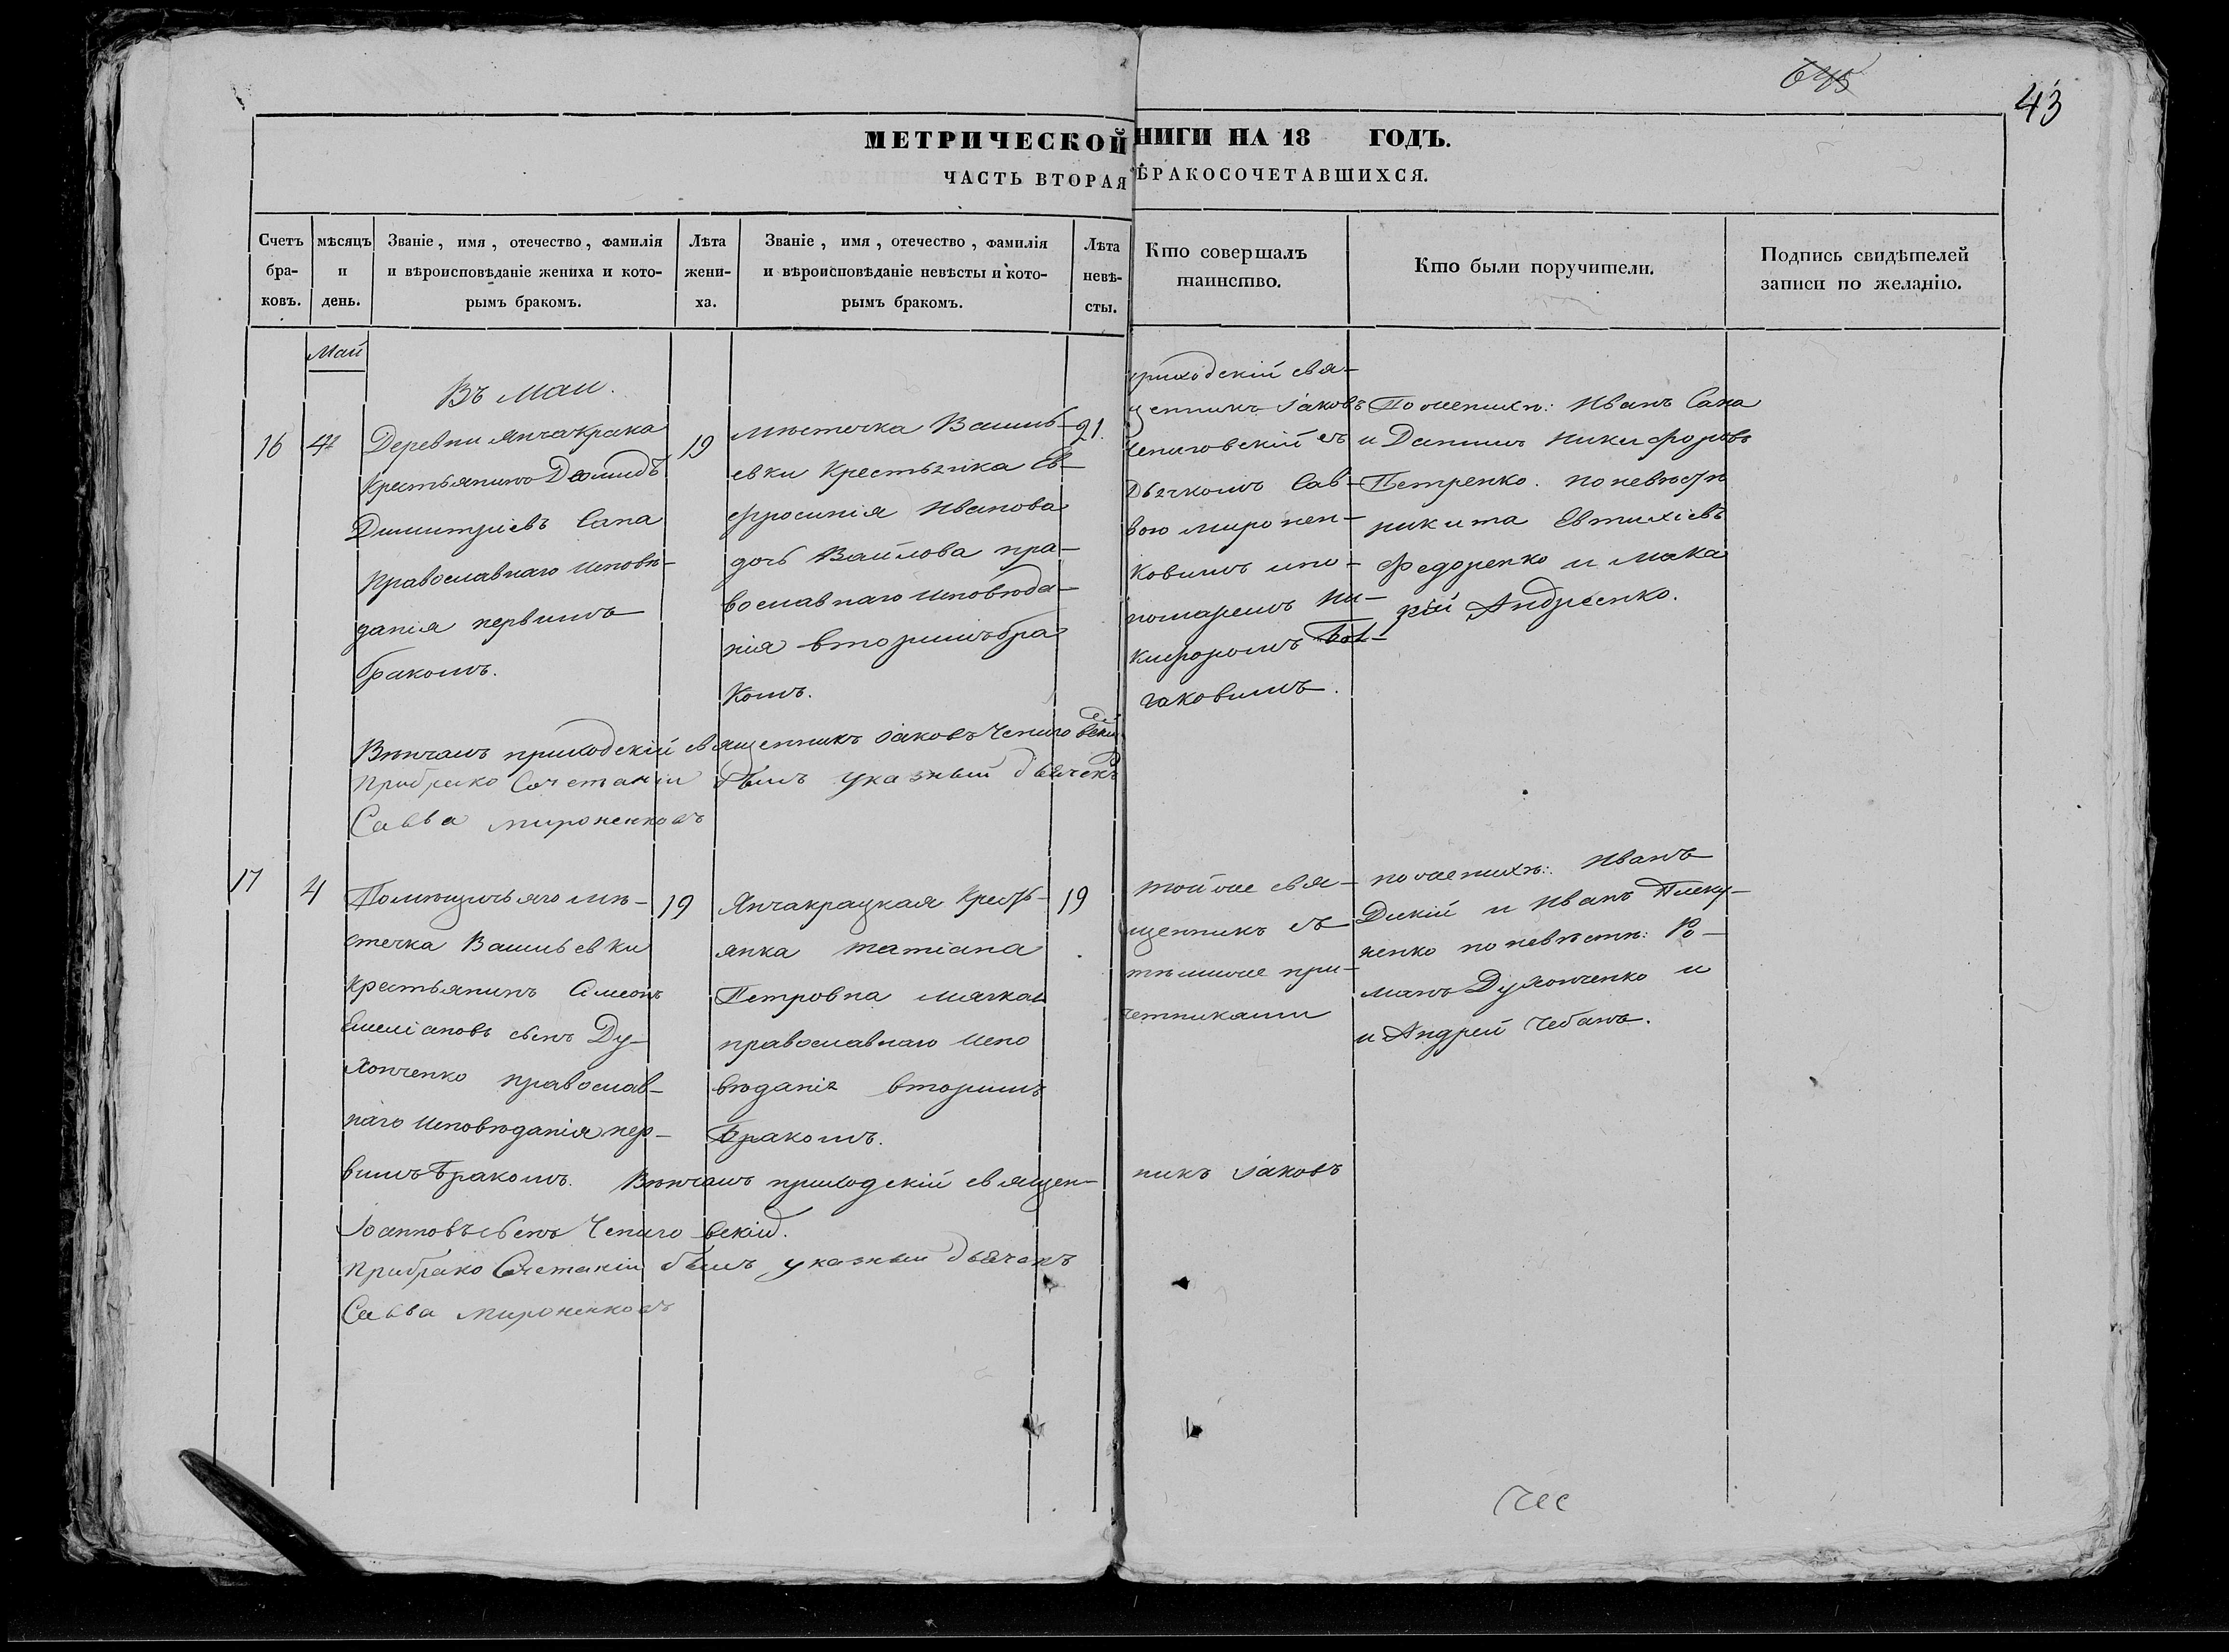 43
МЕТРИЧЕСКОЙ НИГИ НА 18 ГОДЪ.
ЧАСТЬ ВТОРАЯ БРАКОСОЧЕТАВШИХСЯ.
Счетъ бра-ковъ.
мѣсяцъ и день.
Званіе, имя, отечество, фамилія
и вѣроисповѣданіе жениха и кото-
рымъ бракомъ.
Лѣта жени-ха.
Званіе, имя, отечество, фамилія
и вѣроисповѣданіе невѣсты и кото-
рымъ бракомъ.
Лѣта невѣ-сты.
Кто совершалъ
таинство.
Кто были поручители.
Подпись свидѣтелей
записи по желанію.
Май
Въ Маи.
16
4
Деревни Янчакрака
Крестьянинъ Деомидъ
Димитріевъ Сапа
Православнаго исповѣ-
данія первимъ
бракомъ.
19
Мѣстечка Василь-
евки Крестьянка Ев-
фросинія Иванова
дочь Вайлова пра-
вославнаго исповѣда-
нія вторимъ бра
комъ.
21.
приходскій свя-
щенникъ Іаковъ
Чепиговскій съ
Дьячкомъ Сав-
вою Миронен-
ковимъ и по-
номаремъ Ни-
кифоромъ
гаковимъ.
По женихѣ: Иванъ Сапа
и Даниилъ Никифоровъ
Петренко. по невѣстѣ
Никита Евтихіевъ
Федоренко и Мака
рій Андреенко.
Вѣнчалъ приходскій священникъ Іаковъ Чепиговскій
При брако Сочетаніи былъ указный дьячекъ
Савва Мироненковъ
17
4
Помѣщичьяго мѣ-
стечка Васильевки
Крестьянинъ Симеонъ
Емеліановъ сынъ Ду-
хонченко православ-
наго исповѣданія пер-
вимъ бракомъ.
19
Янчакрацкая Кресть-
янка Татіана
Петровна Мягкая
православнаго испо
вѣданія вторимъ
Бракомъ.
19
тойже свя-
щенникъ съ
тѣмиже при-
четниками
по женихѣ: Иванъ
Дикій и Иванъ
ненко по невѣстѣ: Ро-
манъ Духонченко и
и Андрей Чебанъ.
Вѣнчалъ приходскій священ-никъ Іаковъ
Іоанновъ сынъ Чепиговскій.
При брако Сочетаніи былъ указный дьячокъ
Савва Мироненковъ